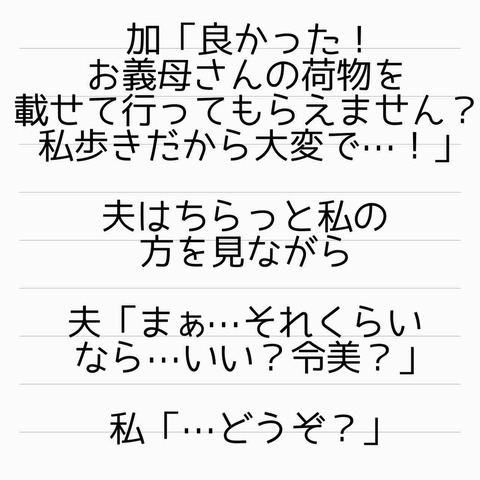 加「良かった！
お義母さんの荷物を
載せて行ってもらえません？
私歩きだから大変で…！」
夫はちらっと私の
方を見ながら
夫「まぁ…それくらい
なら…いい？令美？」
私「…どうぞ？」